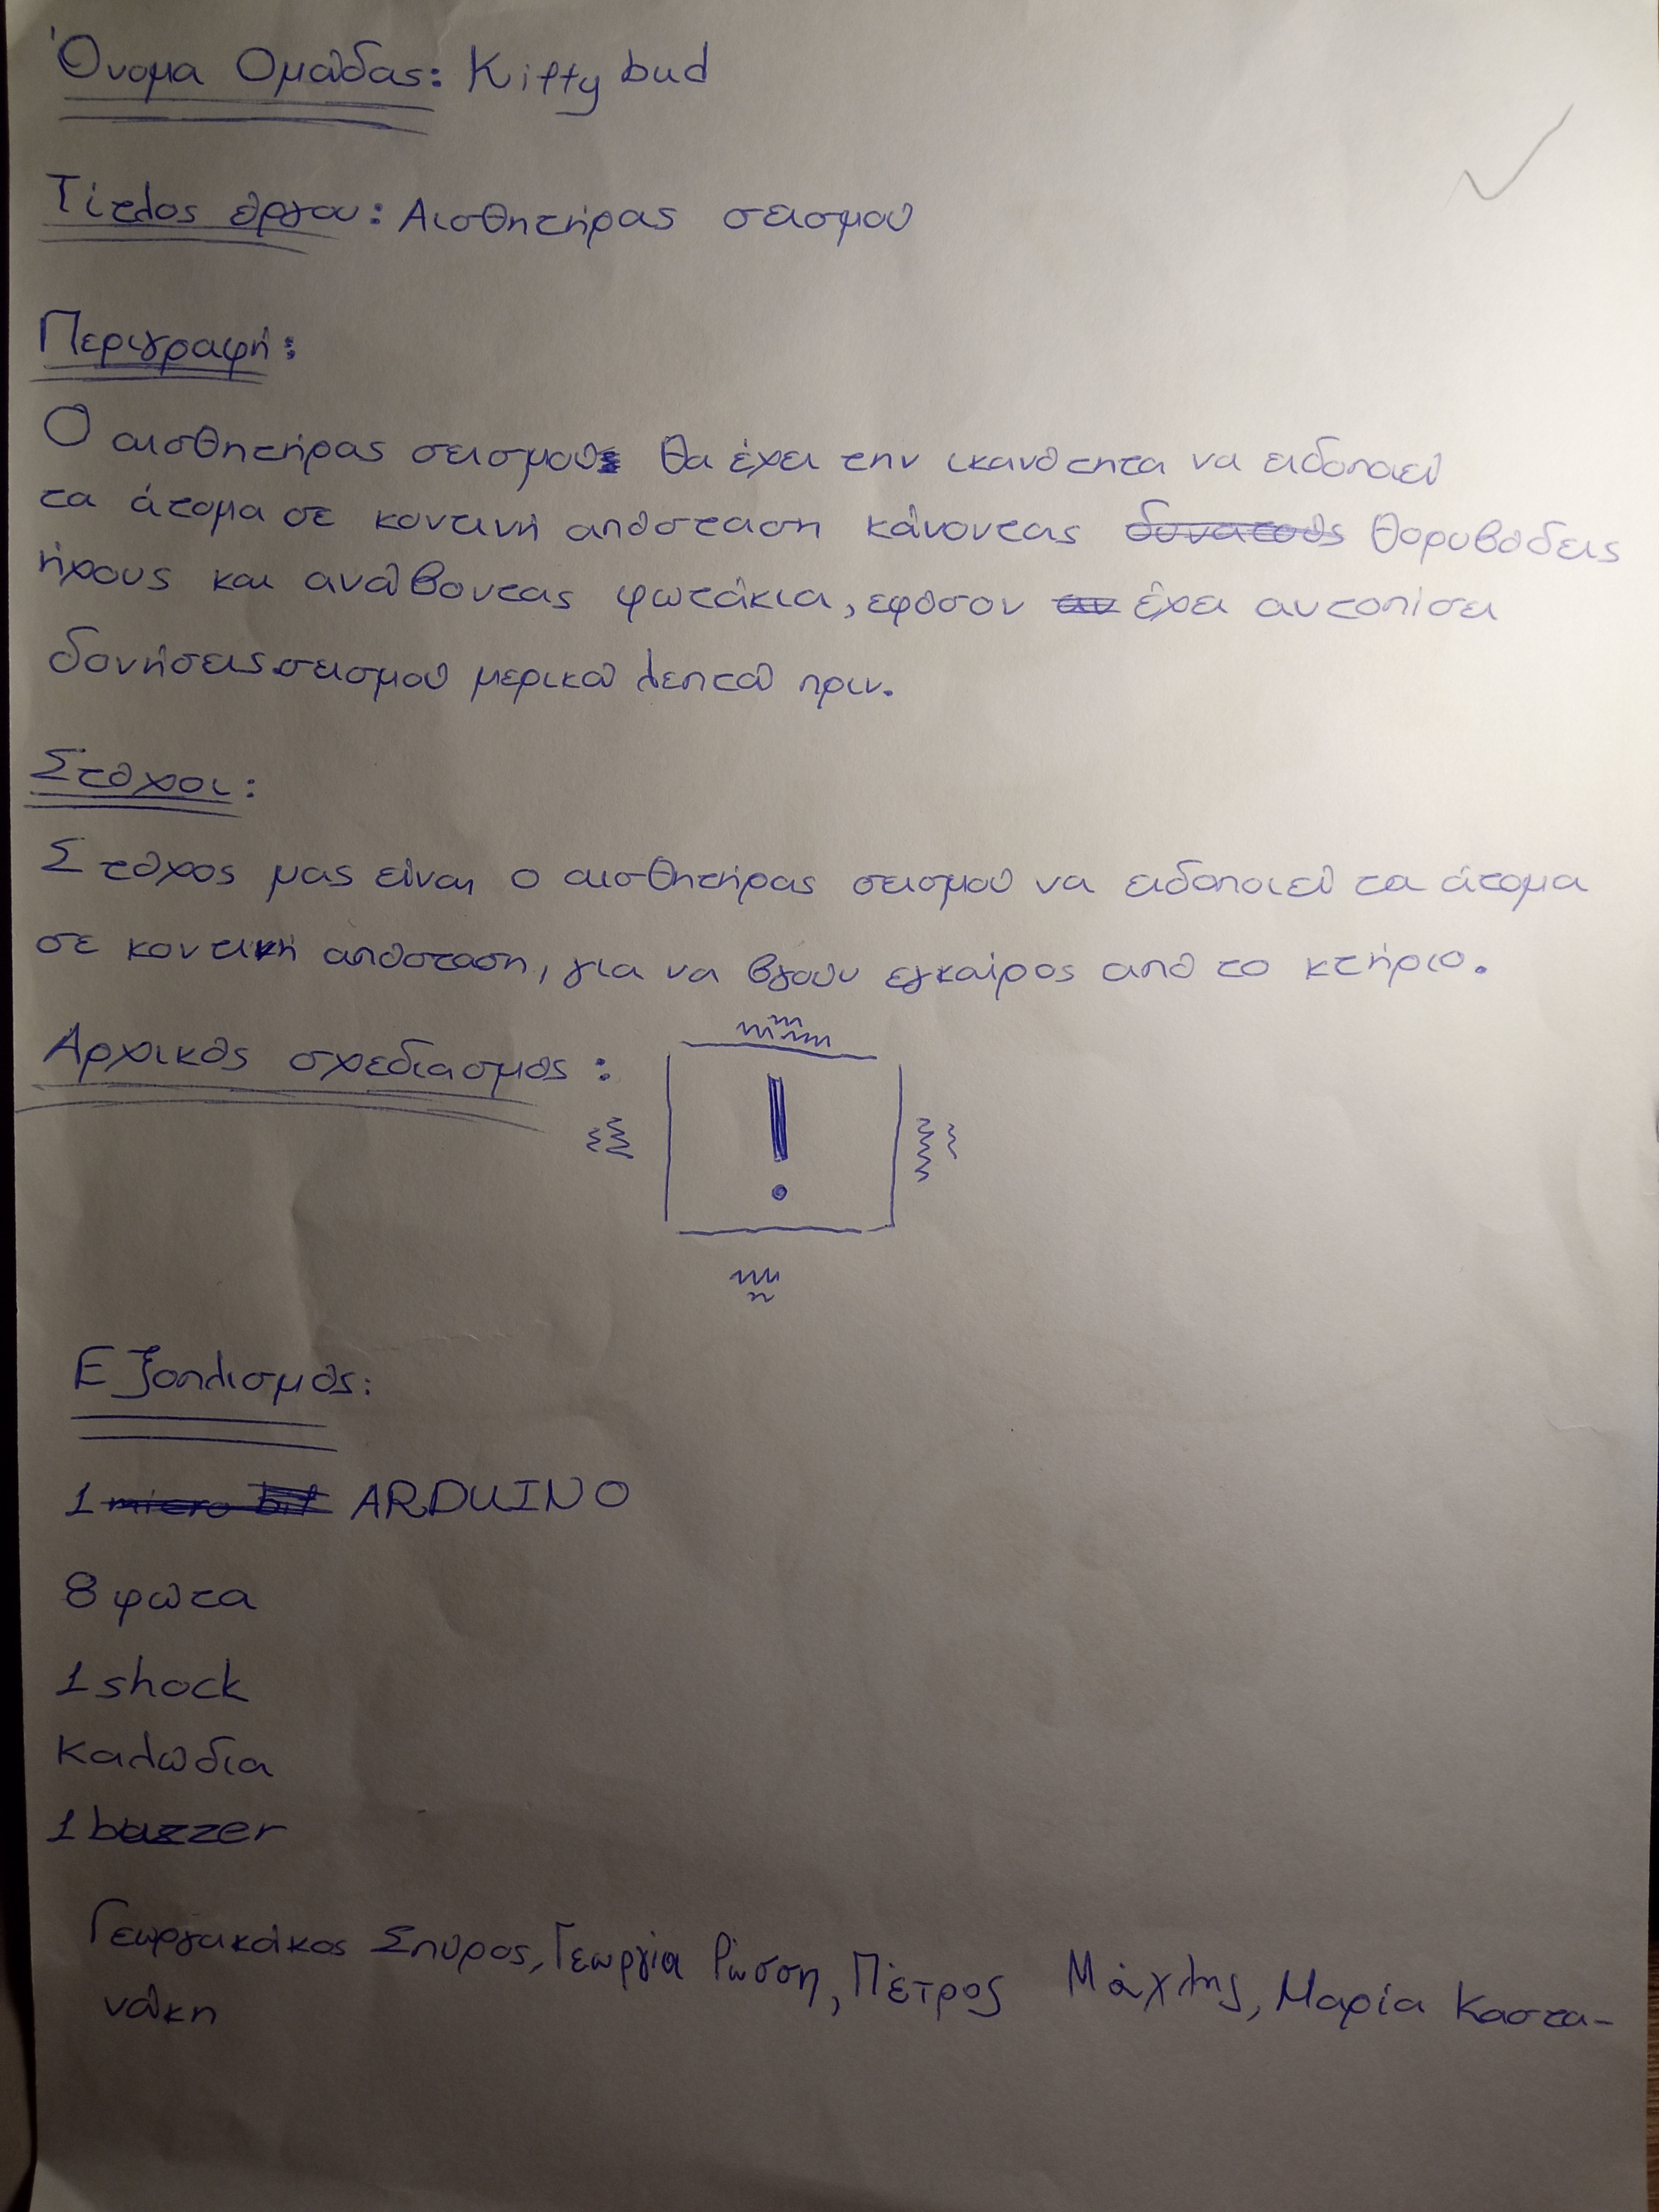 Όνομα Ομάδας: Kitty bud
Τίτλος έργου: Αισθητήρας σεισμού
Περιγραφή:
Ο αισθητήρας σεισμού θα έχει την ικανότητα να ειδοποιεί
τα άτομα σε κοντινή απόσταση κάνοντας δυνατούς θορυβόδεις
ήχους και ανάβοντας φωτάκια, εφόσον αν έχει αντοπίσει
δονήσεις σεισμού μερικά λεπτά πριν.
Στόχοι:
Στόχος μας είναι ο αισθητήρας σεισμού να ειδοποιεί τα άτομα
σε κοντινή απόσταση, για να βγούν εγκαίρος από το κτήριο.
Αρχικός σχεδιασμός:
!
Εξοπλισμός:
1 micro bit ARDUINO
8 φώτα
1 shock
Καλώδια
1 buzzer
Γεωργακάκος Σπύρος, Γεωργία Ρώσση, Πέτρος Μάχλης, Μαρία Καστα-
νάκη